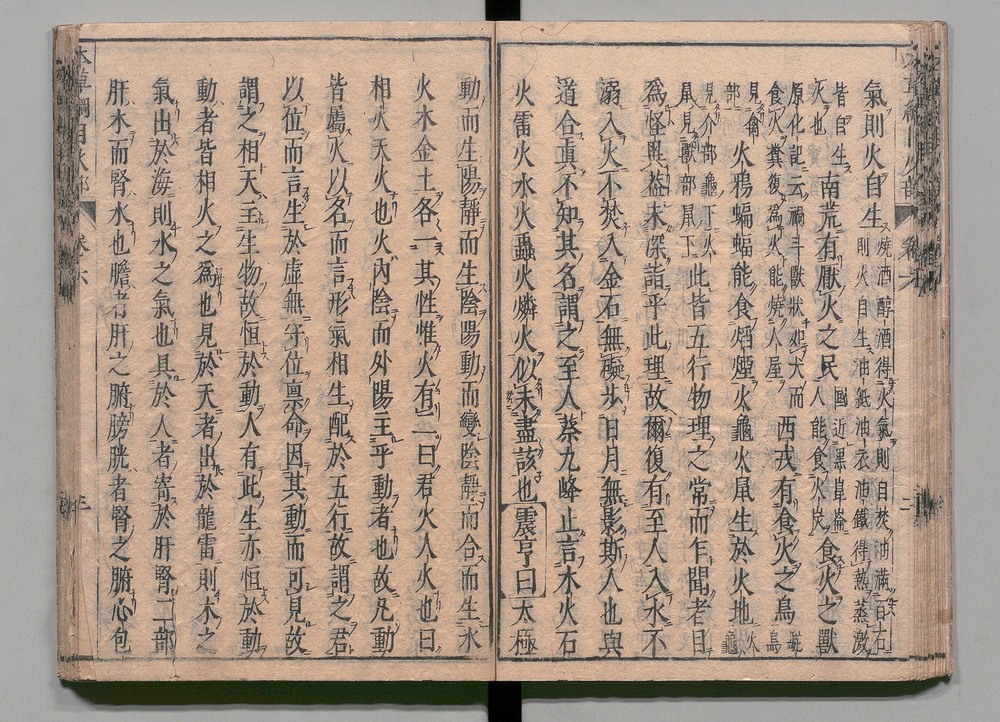 氣則火自生燒酒醇酒得火氣則自焚油滿百石則火自生油紙油衣油鐵得熱蒸激
皆自生火也南荒有厭火之民國近黑崑崙人能食火炭食火之獸
原化記云禍斗獸狀如犬而食火糞復為火能燒人屋西戎有食火之鳥
見禽部火鴉蝙蝠能食焰煙火龜火鼠生於火地火龜
見介部龜下火鼠見獸部鼠下此皆五行物理之常而乍聞者目
爲怪異蓋未深詣乎此理故爾復有至人入水不
溺入火不焚入金石無礙步日月無影斯人也與
道合眞不知其名謂之至人蔡九峰止言木火石
火雷火水火蟲火燐火似未盡該也震亨曰太極
動而生陽靜而生陰陽動而變陰靜而合而生水
火木金土各一其性惟火有二曰君火人火也曰
相火天火也火內陰而外陽主乎動者也故凡動
皆屬火以名而言形氣相生配於五行故謂之君
以位而言生於虛無守位禀命因其動而可見故
謂之相天主生物故恒於動人有此生亦恒於動
動者皆相火之為也見於天者出於龍雷則木之
氣出於海則水之氣也具於人者寄於肝腎二部
肝木而腎水也膽者肝之腑膀胱者腎之腑心包
本草綱目火部 卷六 三